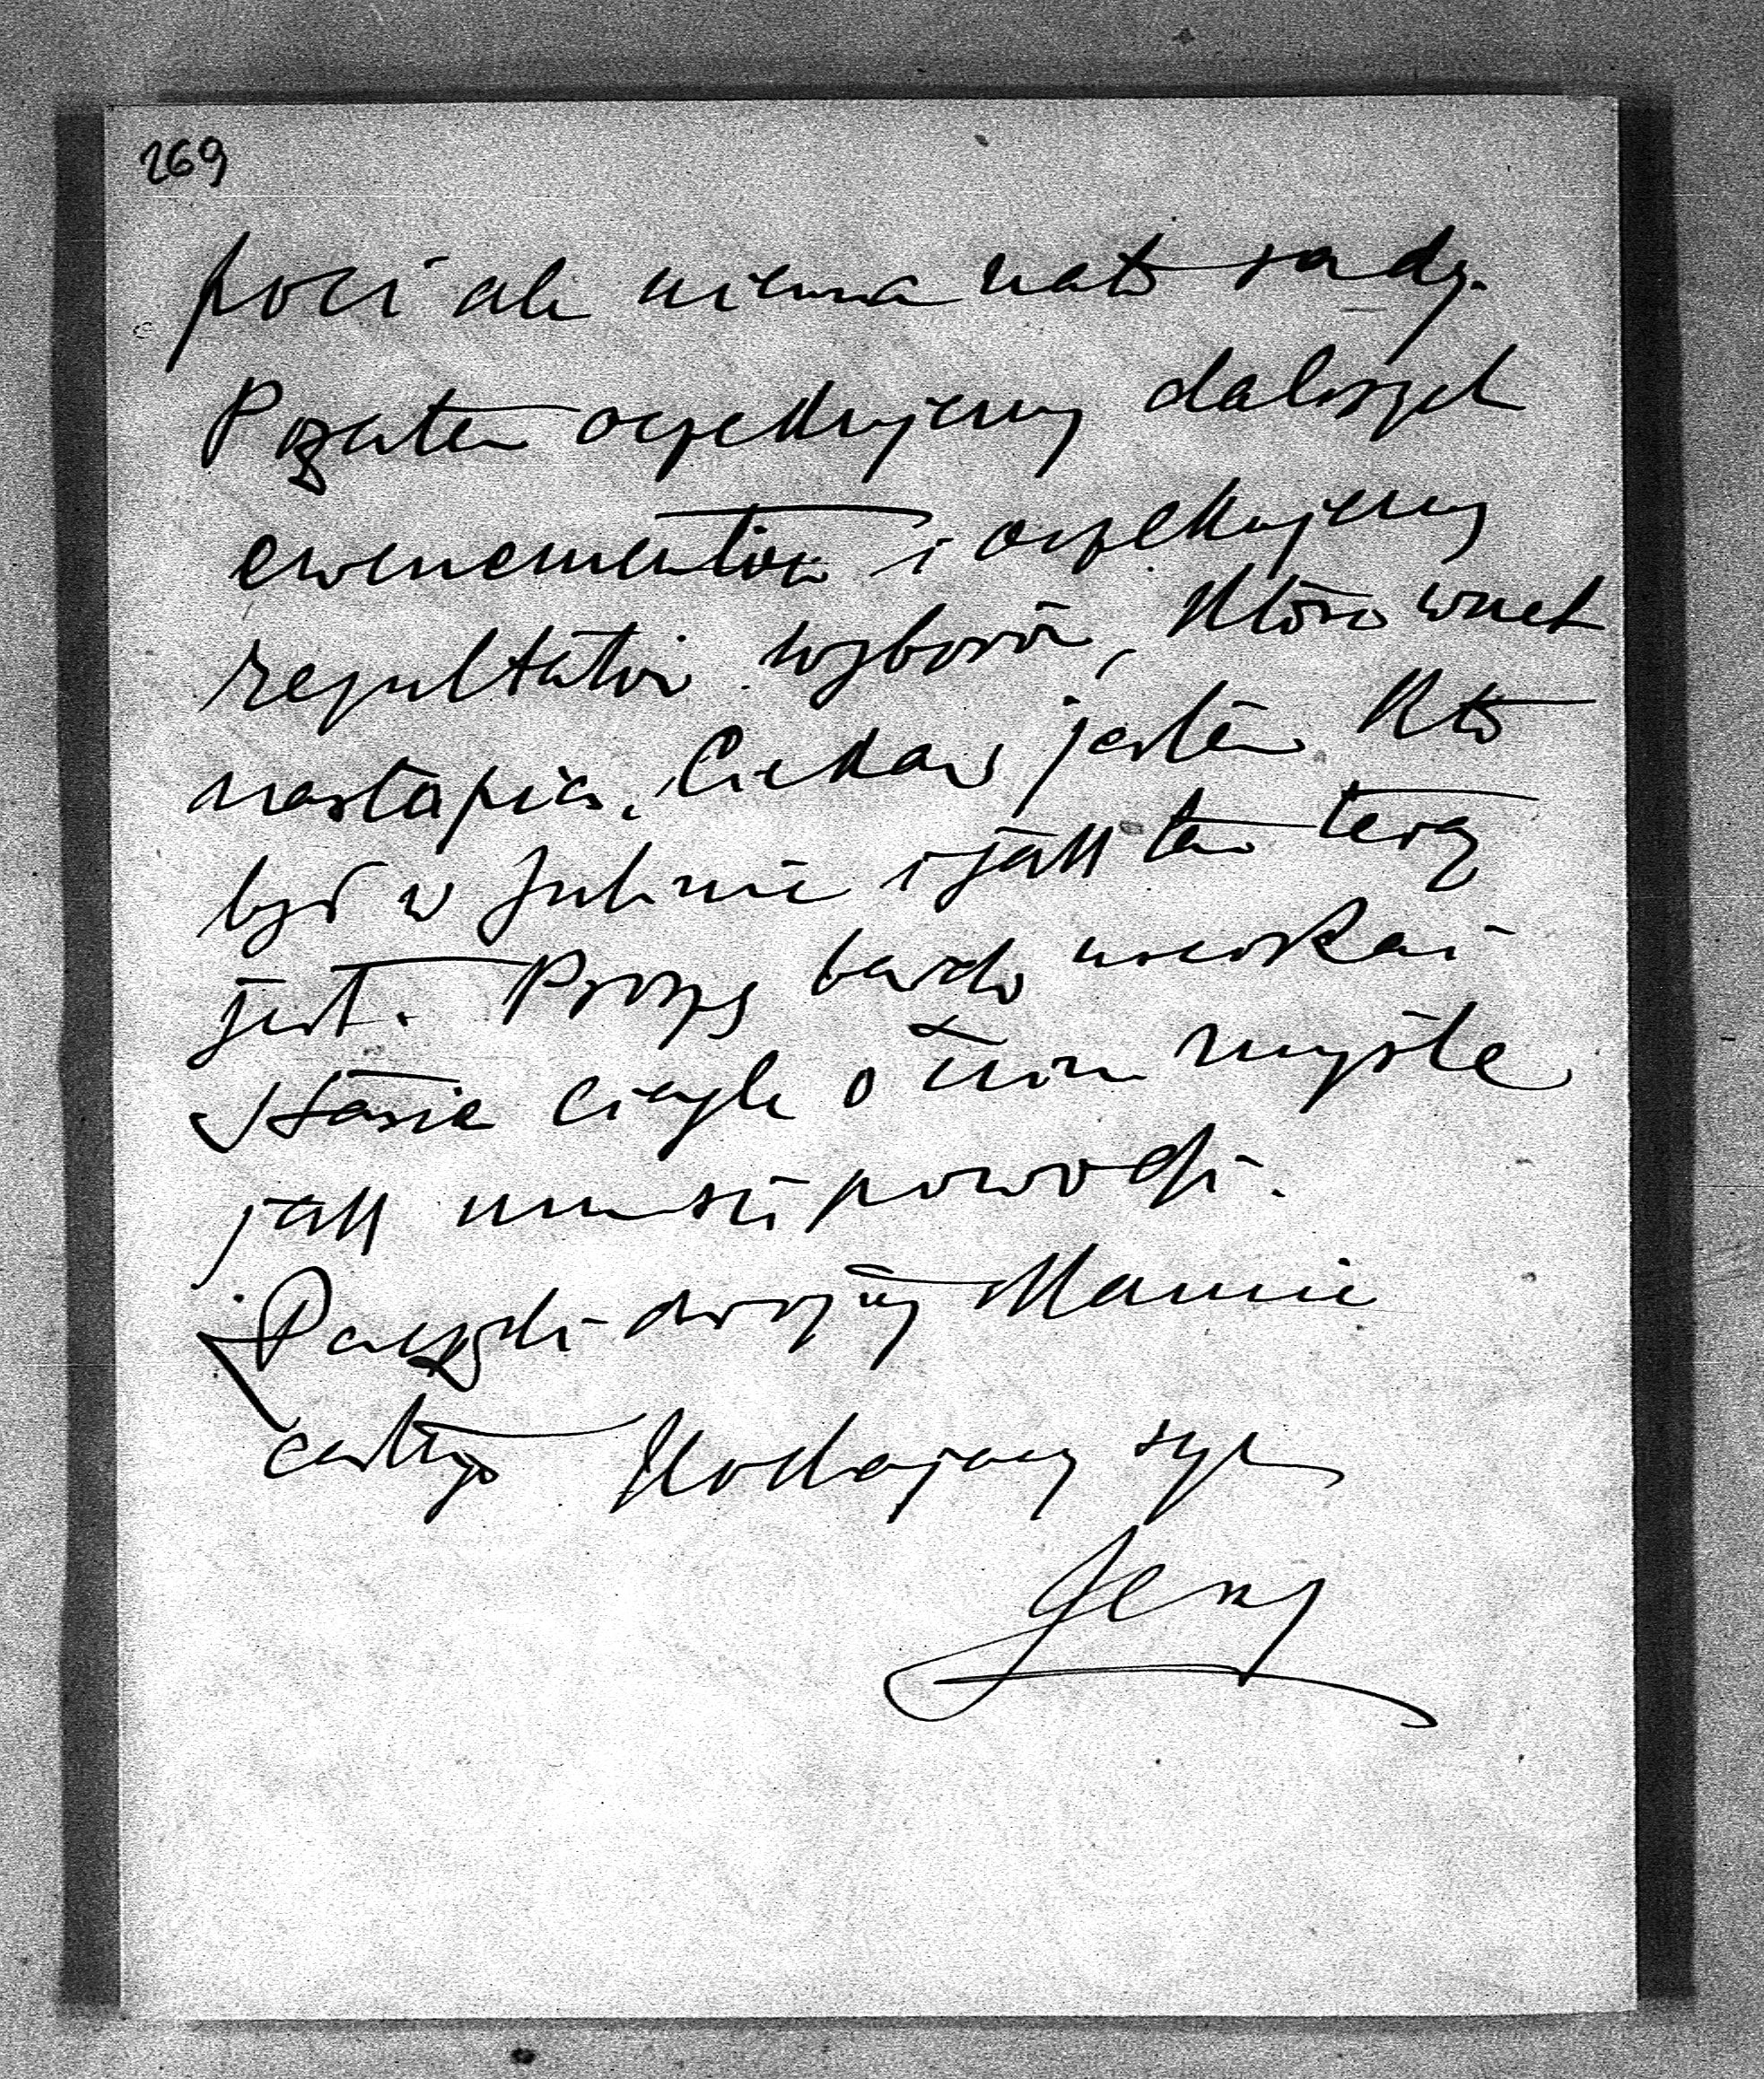 269
poci ale niema na to rady.
Pozatem oczekujemy dalszych
ewenementów i oczekujemy
rezultatów wyborów, które wnet
nastąpią. Ciekaw jestem kto
był w Julinie i jak tam teraz
jest. Proszę bardzo uściskać
Stasia ciągle o nim myślę
jak mu się powodzi.
Rączki drogiej Mamie
całuję kochający syn
Jerzy